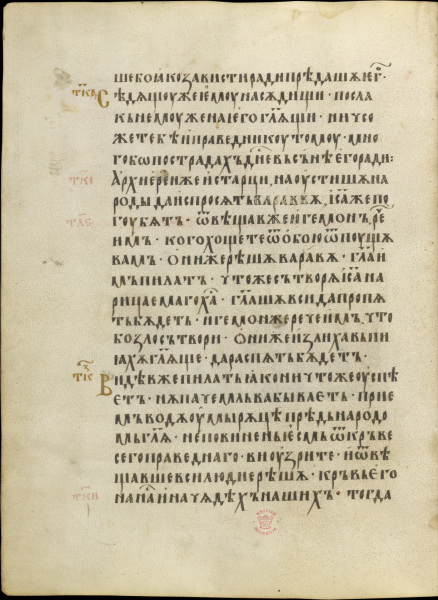 шебо ꙗко завистиради прѣдашѧ ег҃о ·
Сѣдѧщоу же емоу на сѫдищи · посла
къ немоу жена его гл҃ѧщи · ничсо
же тебѣ и праведникоу томоу · мно
гобо пострадахъ дн҃е въ сънѣ его ради:
Архиереи же и старци, наоустишѧ на
роды да испросѧтъ вараввѫ, іс҃а же по
гоубѧтъ · Ѿвѣщав же игемонъ, реⷱ
имъ · кого хощете ѿ обою ѿпоущѫ
вамъ · они же рѣшѧ варавѫ · гл҃а и
мъ пилатъ · что же сътворѧ іс҃а на
рицаемаго х҃а · гл҃ашѧ вси да пропѧ
тъ бѫдетъ · игемон же рече имъ, что
бо зло сътвори · Они же излиха въпи
ꙗхѫ гл҃ѧще · да распѧтъ бѫдетъ ·
Видѣв же пилатъ ꙗко ничтоже оуспѣ
етъ · нѫ паче млъва бываетъ · прие
мъ водѫ оумы рѫцѣ прѣдь народо
мь гл҃ѧ · неповиненъ есмъ ѿ кръве
сего праведнаго · ви оузрите · и ѿвѣ
щавше вси людие рѣшѧ · кръвь его
на наⷭ и на чѧдѣхъ нашихъ · тогда